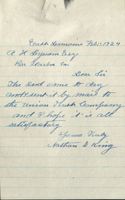 South Harmony Feb 1 1924
A H
Dear Sir
The deed came to day
and sent it by mail to
the Union Trust Company
and I hope it is all
satisfactory
Yours Truly
Nathan D King